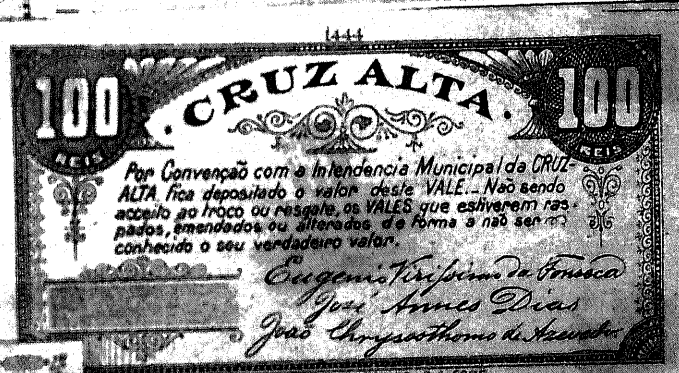 1444
100 REIS
CRUZ ALTA
100 REIS
Por Convenção com a Intendencia Municipal da CRUZ-
ALTA fica depositado o valor deste VALE._ Não sendo
acceito ao troco ou resgate, os VALES que estiverem ras-
pados, emendados ou alterados de forma a não ser
conhecido o seu verdadeiro valor.
Eugenio Verissimo da Fonseca
José Annes Dias
João Chrysosthomo de Azevedo